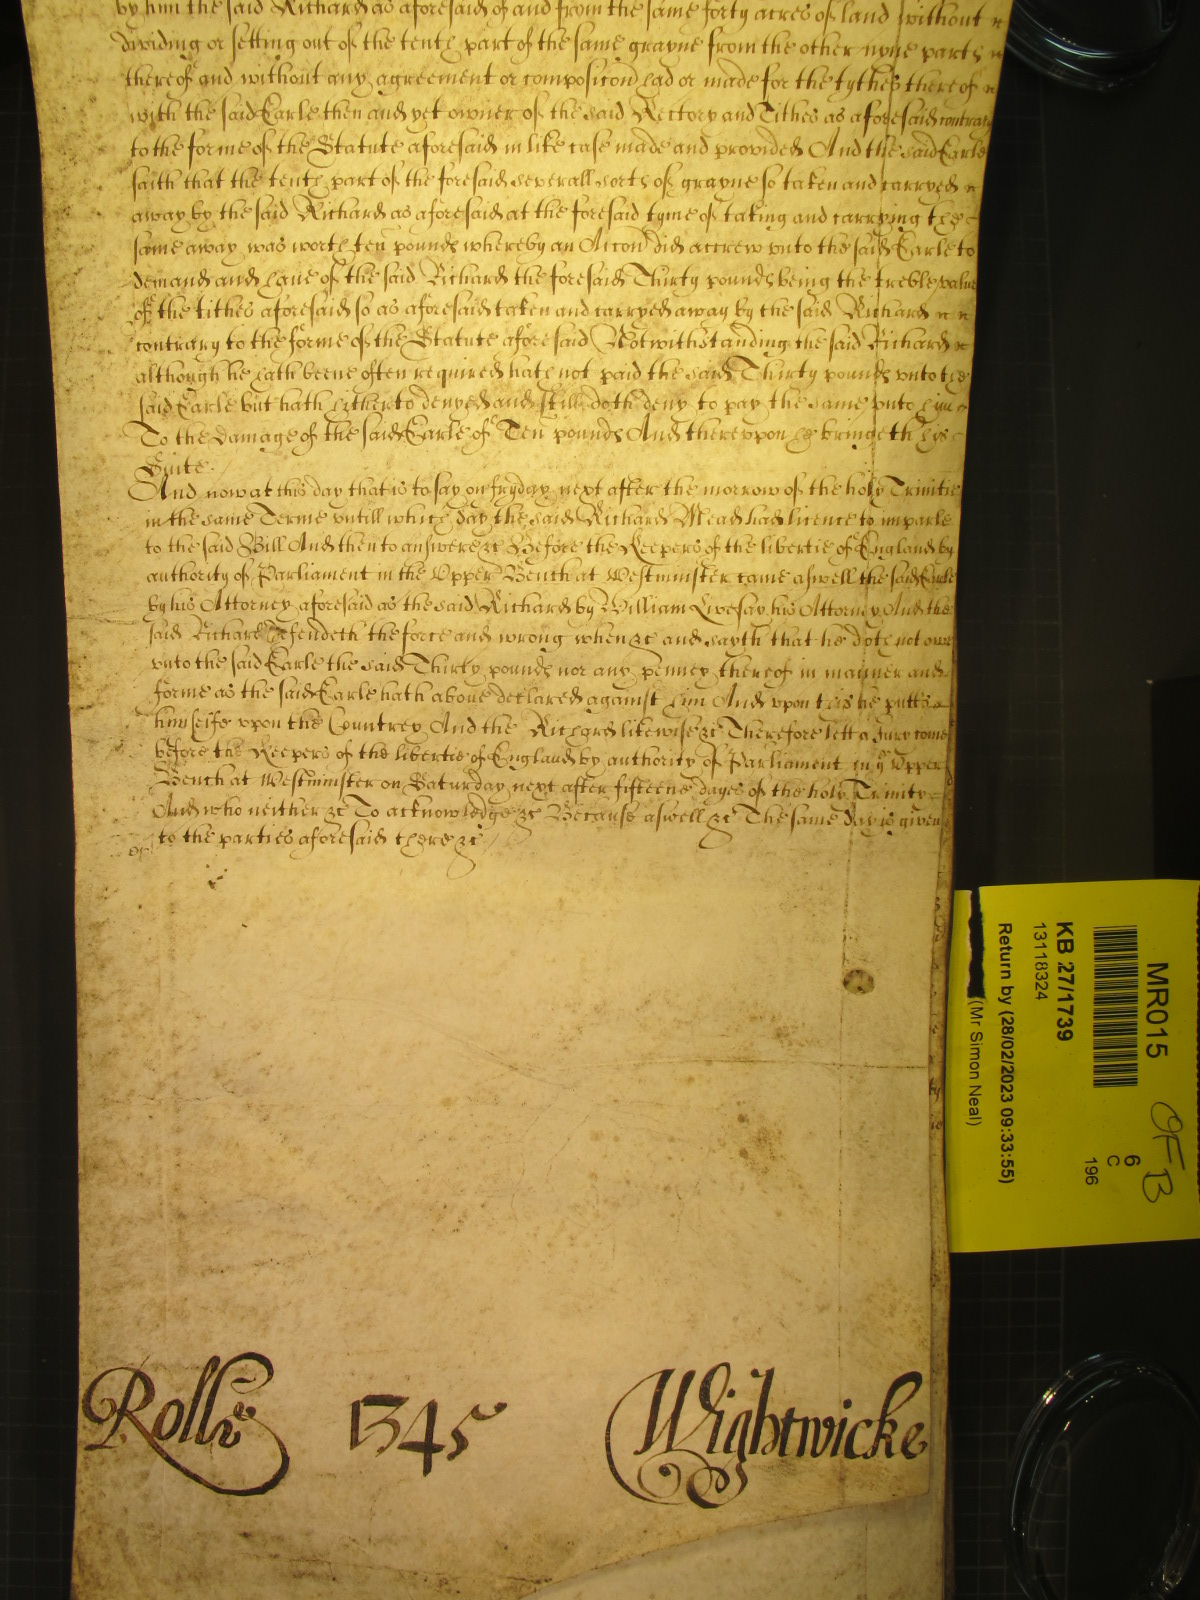 by him the said Richard as aforesaid of and from the same forty acres of land without
dividing or setting out of the tenth part of the same grayne from the other nyne parts
thereof and without any agreement or composicon had or made for the tythes there of
with the said Earle then and yet owner of the said Rectory and Tithes as aforesaid contrary
to the forme of the Statute aforesaid in like case made and provided And the said Earle
saith that the tenth part of the foresaid severall sorts of grayne so taken and carryed
away by the said Richard as aforesaid at the foresaid tyme of taking and carrying the
same away was worth ten pounds whereby an Accon did accrew vnto the said Earle to
demand and haue of the said Richard the foresaid Thirty pounds being the treble value
of the tithes aforesaid so as aforesaid taken and carryed away by the said Richard
contrary to the forme of the Statute aforesaid Notwithstanding the said Richard
although he hath beene often required hath not paid the said Thirty pounds vnto the
said Earle but hath hitherto denyed and still doth deny to pay the same vnto him
To the damage of the said Earle of Ten pounds And therevpon he bringeth his
Suite
And now at this day that is to say on fryday next after the morrow of the holy Trinitie
in the same Terme vntill which day the said Richard Mead had licence to imparle
to the said Bill And then to answere &c Before the Keepers of the libertie of England by
authority of Parliament in the Vpper Bench at Westminster came aswell the said Earle
by his Attorney aforesaid as the said Richard by William Livesay his Attorney And the
said Richard defendeth the force and wrong when &c and sayth that he doth not owe
vnto the said Earle the said Thirty pounds nor any penney thereof in manner and
forme as the said Earle hath aboue declared against him And vpon this he putts
himselfe vpon the Countrey And the Richard likewise &c Therefore lett a Jury come
before the Keepers of the libertie of England by authority of Parliament in ye Vpper
Bench at Westminster on Saturday next after fifteene dayes of the holy Trinity
And who neither &c To acknowledge &c Because aswell &c The same day is given
to the parties aforesaid there &c
Rolle 1345 Wightwicke
MR015
KB 27/1739
13118324
Return by (28/02/2023 09:33:55)
(Mr Simon Neal)
6
C
196
OF B